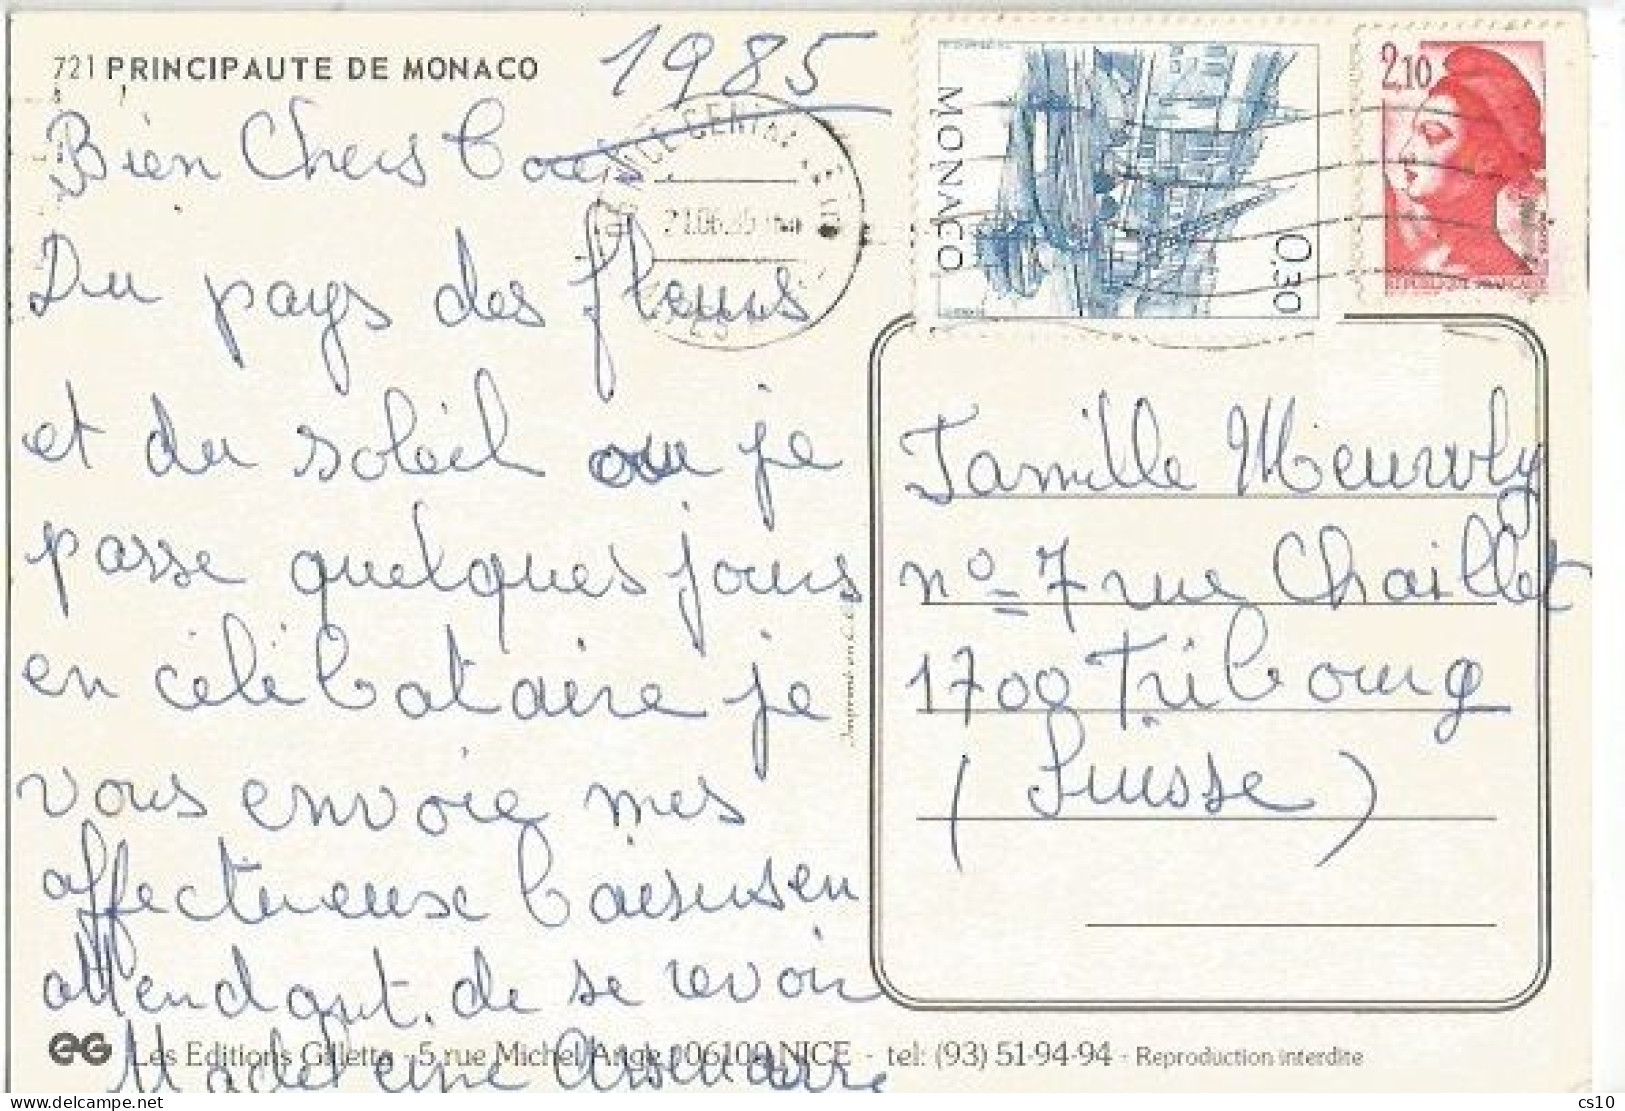 721 PRINCIPAUTE DE MONACO
1985
Bien Chers
Du pays des fleurs
et du soleil ou je
passe quelques jours
en célébataire je
vous envoie mes
affectueuse baisers en
attendant de se revoir
Madeleine
MONACO
0,30
2,10
REPUBLIQUE FRANÇAISE
NICE CENTRE
21.06.85
Famille Meuwly
n° 7 rue Chaillet
1700 Fribourg
(Suisse)
EG Les Editions Gilletta - 5, rue Michel Ange - 06100 NICE - tel: (93) 51-94-94 - Reproduction interdite
cs10